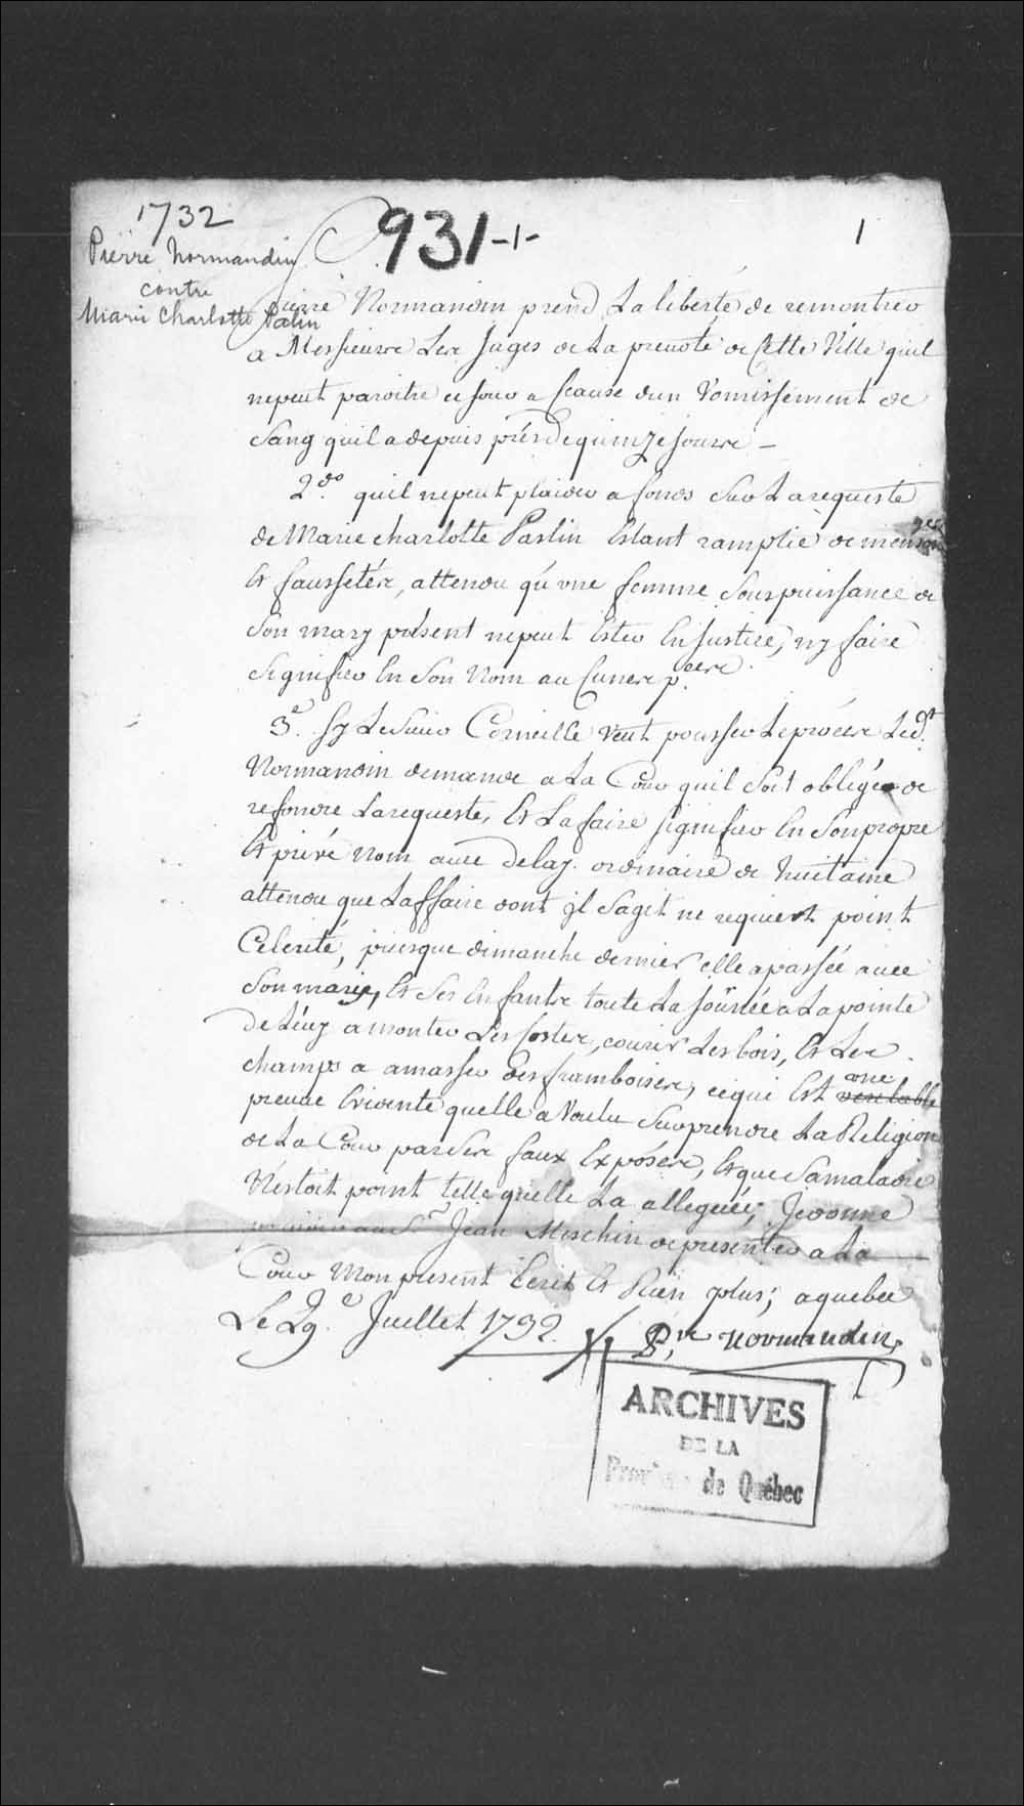 1732
Pierre Normandin
contre
Marie Charlotte Palin
931-1-
1
Pierre Normandin prend La liberté de remontrer
a Messieurs Les Juges de La prevoté de Cette Ville quil
nepeut paroitre ce jour a Cause dun Vomissement de
Sang quil a depuis prés de quinze jours -
2.do quil nepeut plaider a fonds Sur La requeste
de Marie charlotte Parlin Estant ramplie de mensonges
Et faussetés, attendu qu'une femme Sous puissance de
Son mary présent nepeut Ester En Justice, ny faire
Signifier En Son Nom au
3.e Sy Le Sieur Corneille veut pousser Le procés Led.t
Normandin demande a La Cour quil Soit obligé de
refondre La requeste, Et La faire Signifier En Son propre
Et privé Nom avec delay ordinaire de huitaine
attendu que Laffaire dont jl Sagit ne requiert point
Celerité, puisque dimanche dernier elle a passée avec
Son marie, Et Ses Enfants toute La journée a La pointe
De Lévy a monter Les Costes, courir Les bois, Et Les
champs a amasser des framboises, ce qui Est une veritable
preuve Evidente quelle a Voulu Surprendre La Religion
de La Cour par Ses faux Exposés, Et que Sa maladie
N'estoit point telle quelle La alleguée; Je donne
au S.r Jean Meschin de presenter a La
Cour Mon present Ecrit Et Rien plus; a quebec
Le 29.e Juillet 1732.
P.re normandin
ARCHIVES
DE LA
Province de Québec